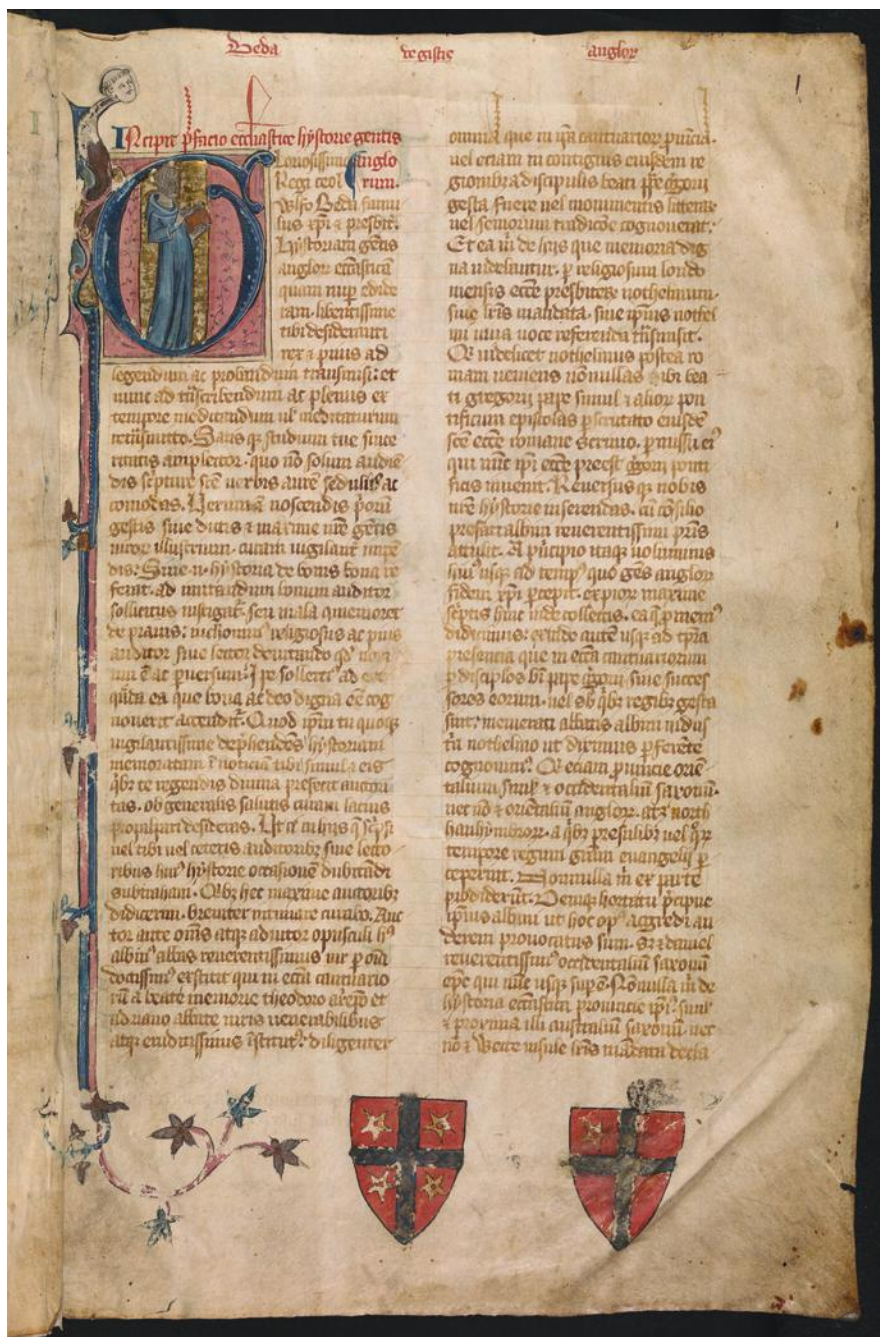 Beda de gestis anglor
1
INcipit pfacio ecclīastice hystorie gentis
Gloriosissimo Anglo
Regi ceol rum.
wlfo Beda famu
lus xp̄i ⁊ presbit̄.
Hystoriam gētis
anglor ecclīasticā
quam nup edide
ram. libentissime
tibi desideranti
rex ⁊ prius ad
legendum ac probandum transmisi: et
nunc ad t̄nscribendum ac plenius ex
tempore meditandum
ret̄nsmitto. Satis qꝫ studium tue since
ritatis amplector. quo nō solum audiē
dis sc̄pture sc̄e uerbis aurē sedulus ac
comodas. Uerum ⁊ noscendis p̄orum
gestis siue dictis ⁊ maxime nr̄e gētis
uiror illustrium. curam uigilant̄ impē
dis: Siue .n. hystoria de bonis bona re
ferat. ad imitandum bonum auditor
sollicitus instigat̄. seu mala
de prauis: religiosus ac pius
auditor siue lector deuitando qd̄ noxi
um ē ac puersum: Ipse sollerti ad exe
qūda ea que bona ac deo digna eē cog
nouerit accendit̄. Quod ip̄m tu quoqꝫ
uigilantissime dep̄hendēs hystoriam
memoratam ī noticiā tibi simul ⁊ eis
qibꝫ te regendis diuina prefecit auctori
tas. ob generalis salutis curam latius
desideras. Ut
uel tibi uel ceteris auditoribꝫ siue lecto
ribus hui' hystorie occasionē dubitādi
subtraham. Qibꝫ hec maxime auctoribꝫ
didicerim. breuiter intimare curabo. Auc
tor ante om̄s atqꝫ adiutor opusculi h'
albin' abbas reuerentissimus uir p om̄ia
doctissim' extitit qui in ecc̄a cantuario
rū a beate memorie theodoro et
adriano abbate uiris uenerabilibus
atqꝫ eruditissimis īstitut': diligenter
omnia que in ip̄a cantuarior p̄uincia.
uel eciam in contiguis eiusdem re
gionibꝫ a discipulis beati
gesta fuere uel monumentis litterar
uel seniorum tradicōe cognouerat:
Et ea m̄ de hijs que memoria dig
na uidebantur. p religiosum londo
niensis ecc̄e presbiterum nothelmum.
siue lr̄is mandata. siue ip̄ius nothel
mi uiua uoce referenda t̄nsmisit.
Qi uidelicet nothelmus postea ro
mam ueniens nōnullas ibi bea
ti gregorij pape simul ⁊ alior pon
tificum epistolas pscrutato eiusdē
sc̄e ecc̄e romane scrinio. pmissu ei'
qui nunc ip̄i ecc̄e preest ponti
ficis inuenit. Reuersus qꝫ nobis
nr̄e hystorie inserendas. cū cōsilio
prefati albini reuerentissimi pr̄is
attulit. A p̄ncipio itaqꝫ uoluminis
hui' usqꝫ ad temp' quo gēs anglor
fidem xp̄i pcepit. ex prior maxime
sc̄ptis hinc inde collectis. ea
didicimus: exinde autē usqꝫ ad tp̄ra
presencia que in ecc̄a cantuariorum
p discipulos bi pape siue succes
sores eorum. uel sub qibꝫ regibꝫ gesta
sint: memerati abbatis albini indus
t̄a nothelmo ut diximus pferēte
cognouim': Qi eciam p̄uincie oriē
talium simul ⁊ occidentaliū saxonū.
nec nō ⁊ orientaliū anglor. atqꝫ north
hanhymbror. a qibꝫ presulibꝫ uel
tempore regum gr̄am euangelij p
ceperint. Nonnulla m̄ ex parte
prodiderūt. Deniqꝫ hortatu p̄cipue
ip̄ius albini ut hoc op' aggredi au
derem prouocatus sum. Sꝫ ⁊ daniel
reuerentissim' occidentaliū saxonū
ep̄c qui nūc usqꝫ supē. Nōnulla m̄ de
hystoria ecclīastica prouincie ip̄i': simul
⁊ proxima illi australiū saxonū. nec
nō ⁊ Wecte insule lr̄is mādata decla